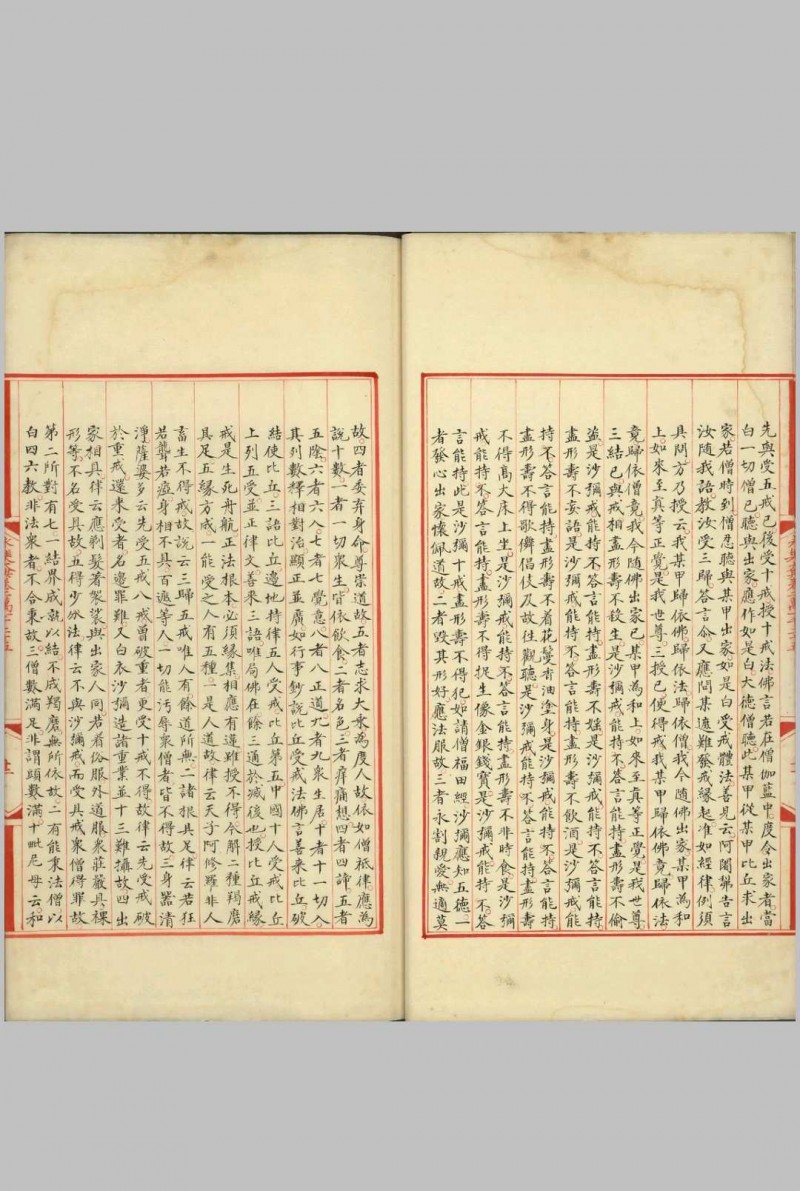 先與受五戒已後受十戒授十戒法佛言若在僧伽藍中度令出家者當
白一切僧已聽與出家應作如是白大德僧聽此某甲從某甲比丘求出
家若僧時到僧忍聽與某甲出家如是白受戒體法善見云阿闍梨告言
汝隨我語教汝受三歸答言爾又應問某遮難發戒緣起准如經律例須
具問方乃授云我某甲歸依佛歸依法歸依僧我今隨佛出家某甲為和
上如來至真等正覺是我世尊三授已便得戒我某甲歸依佛竟歸依法
竟歸依僧竟我今隨佛出家已某甲為和上如來至真等正覺是我世尊
三結已與戒相盡形壽不殺生是沙彌戒能持不答言能持盡形壽不偷
盜是沙彌戒能持不答言能持盡形壽不婬是沙彌戒能持不答言能持
盡形壽不妄語是沙彌戒能持不答言能持盡形壽不飲酒是沙彌戒能
持不答言能持盡形壽不着花鬘香油塗身是沙彌戒能持不答言能持
盡形壽不得歌儛倡伎及故往觀聽是沙彌戒能持不答言能持盡形壽
不得高大床上坐是沙彌戒能持不答言能持盡形壽不非時食是沙彌
戒能持不答言能持盡形壽不得捉生像金銀錢寶是沙彌戒能持不答
言能持此是沙彌十戒盡形壽不得犯如請僧福田經沙彌應知五德一
者發心出家懷佩道故二者毀其形好應法服故三者永割親愛無適莫
故四者委弃身命尊崇道故五者志求大乘為度人故依如僧祇律應為
說十數一者一切眾生皆依飲食二者名色三者痒痛想四者四諦五者
五陰六者六入七者七覺意八者八正道九者九眾生居十者十一切入
其列數釋相對治顯正並廣如行事鈔說比丘受戒法佛言善來比丘破
結使比丘三語比丘邊地持律五人受戒比丘第五中國十人受戒比丘
上列五受並正律文善來三語唯局佛在餘三通於滅後也授比丘戒緣
戒是生死舟航正法根本必須緣集相應有違雖授不得今解二種羯磨
具足五緣方成一能受之人有五種一是人道故律云天子阿修羅非人
畜生不得戒故說云三歸五戒唯人有餘道所無二諸根具足律云若狂
若聾若瘂身相不具百遮等人一切能汚辱眾僧者皆不得故三身器清
淨薩婆多云先受五戒八戒曾破重者更受十戒不得故律云先受戒破
於重戒還來受者名邊罪難又白衣沙彌造諸重業並十三難攝故四出
家相具律云應剃髮着袈裟與出家人同若着俗服外道服眾莊嚴具裸
形等不名受具故五得少分法律云不與沙彌戒而受具戒眾僧得罪故
第二所對有七一結界成就以結不成羯磨無所依故二有能秉法僧以
白四六教非法眾者不合秉故三僧數滿足非謂頭數滿十毗尼母云和